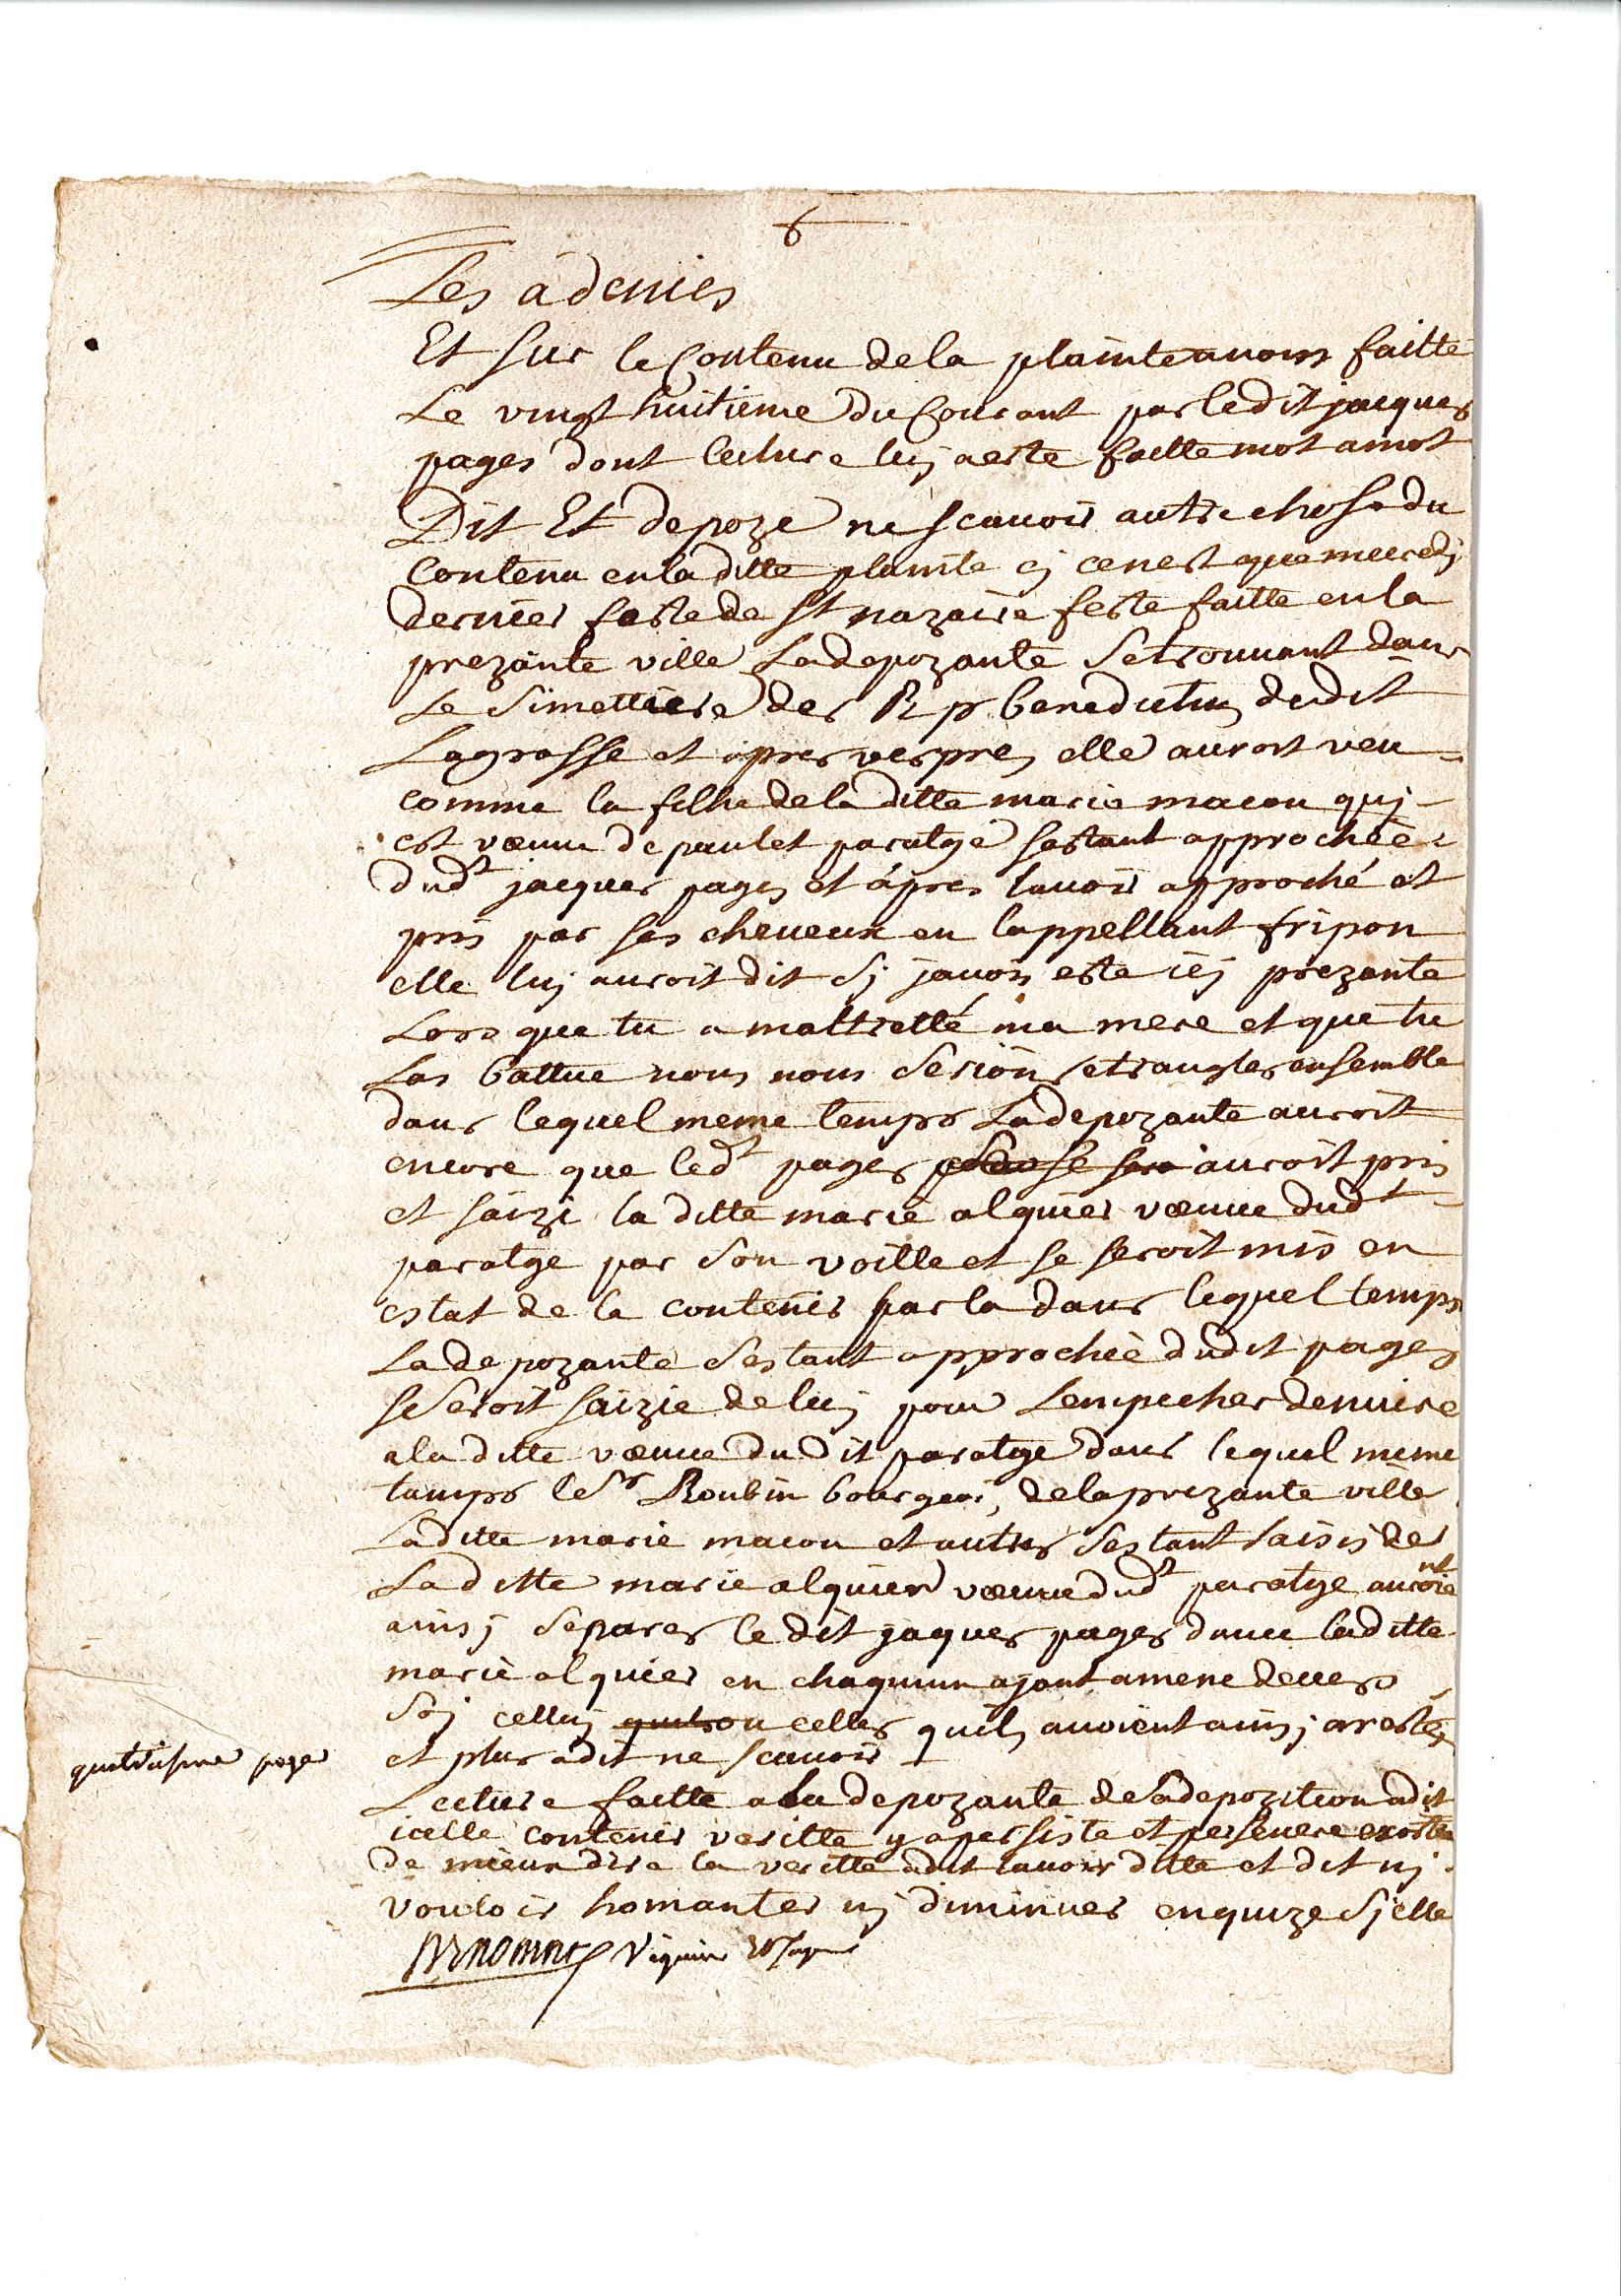 6
Les a denies
Et sur le Contenu de la plainte a nous faitte
Le vingt huitieme du Courant par ledit jacques
pages dont lecture luj a esté faitte mot a mot
Dit Et depoze ne scauoir autre chose du
Contenu en la ditte plainte sj ce nest que mercredj
dernier feste de st nazaire feste faitte en la
prezante ville La depozante se trouuant dans
Le simettiere des R p benedictins dudit
Lagrasse et apres vespres elle auroit veu
comme la filhe de la ditte marie macou quj
est vœuue de paulet paratge sestant approchée
dudt jacques pages et apres lauoir approché et
pris par ses cheueux en lappellant fripon
elle luj auroit dit sj jauois esté icj prezante
Lors que tu a maltretté ma mere et que tu
Las battue nous nous serions etrangler ensemble
dans lequel meme temps La depozante auroit
encore que ledt pages auroit pris
et saizi la ditte marie alquier vœuue dudt
paratge par son voille et se seroit mis en
estat de la contenir par la dans lequel temps
La depozante sestant approchée dudit pages
se seroit saizie de luj pour Lempecher de nuire
a la ditte vœuue du dit paratge dans lequel meme
tamps le Sr Roubin bourgeois de la prezante ville
La ditte marie macou et autres sestant saisis de
La ditte marie alquier vœuue dudt paratge auroint
ainsj separer le dit jaques pages dauec laditte
marie alquier en chaquun ajant amene deuers
soj celluj ou celles quils auoient ainsj arestés
et plus a dit ne scauoir
quatriesme page
Lecture faitte a la depozante de sa depozition a dit
icelle contenir veritte y a persiste et perseueré exortée
de mieux dire la veritte a dit lauoir ditte et dit nj
vouloir homanter nj diminuer enquize sj elle
Viguier